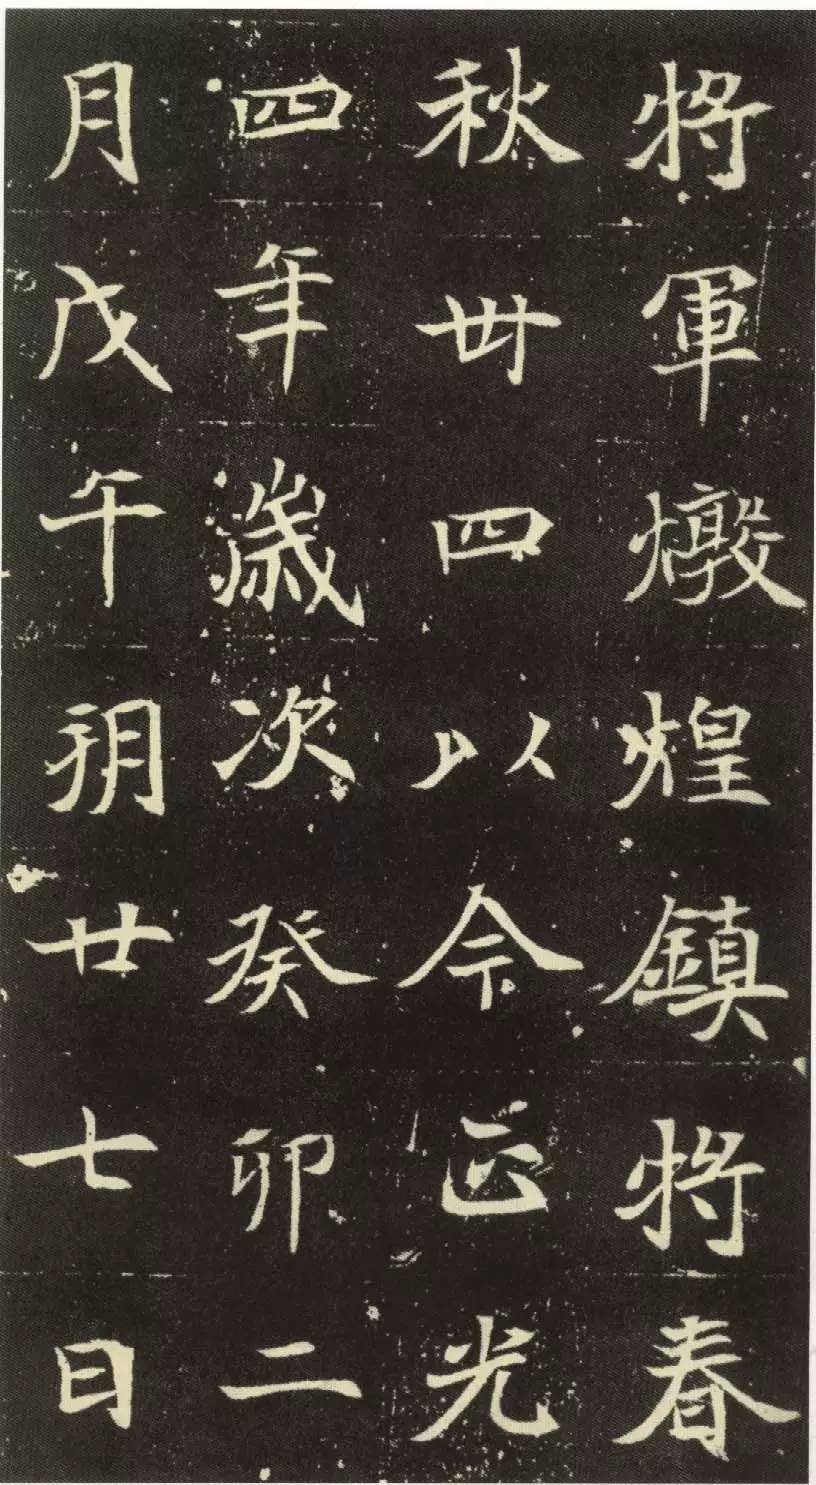 將軍燉煌鎮將春
秋卌四以今正光
四年歲次癸卯二
月戊午玥廿七日